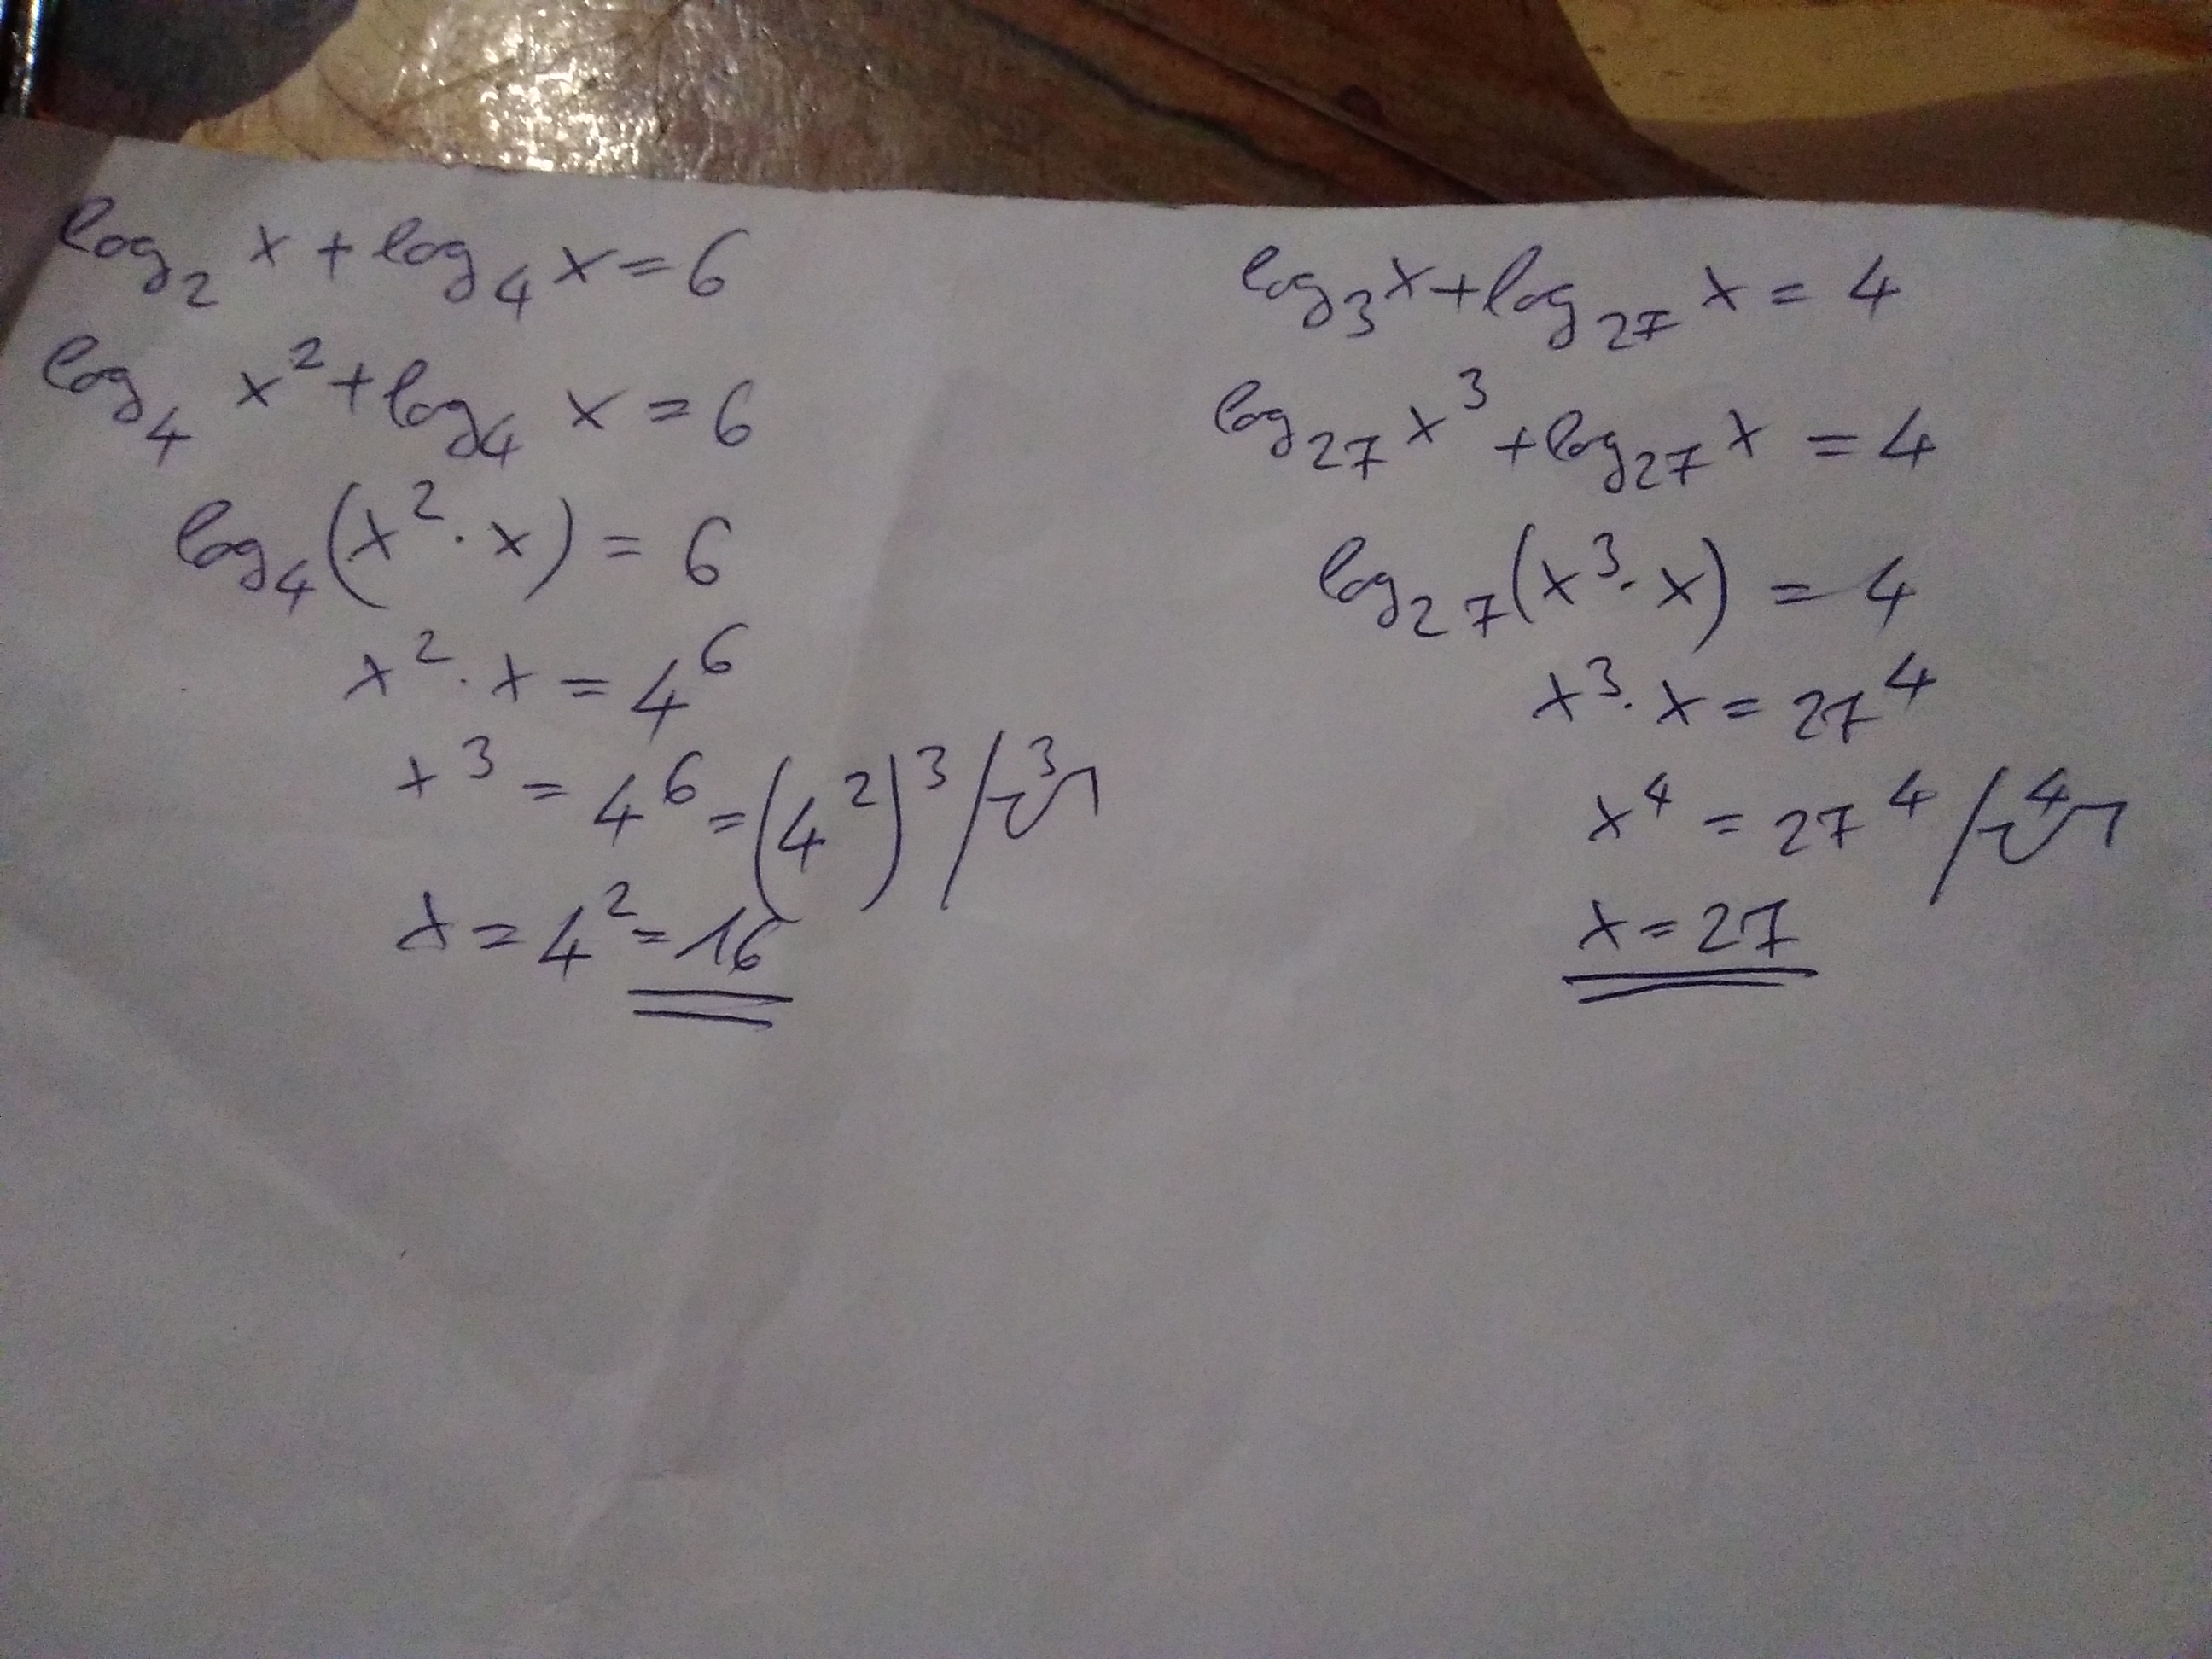 log₂ x + log₄ x = 6
log₄ x² + log₄ x = 6
log₄ (x² · x) = 6
x² · x = 4⁶
x³ = 4⁶ = (4²)³ / ³√
x = 4² = 16
log₃ x + log₂₇ x = 4
log₂₇ x³ + log₂₇ x = 4
log₂₇ (x³ · x) = 4
x³ · x = 27⁴
x⁴ = 27⁴ / ⁴√
x = 27